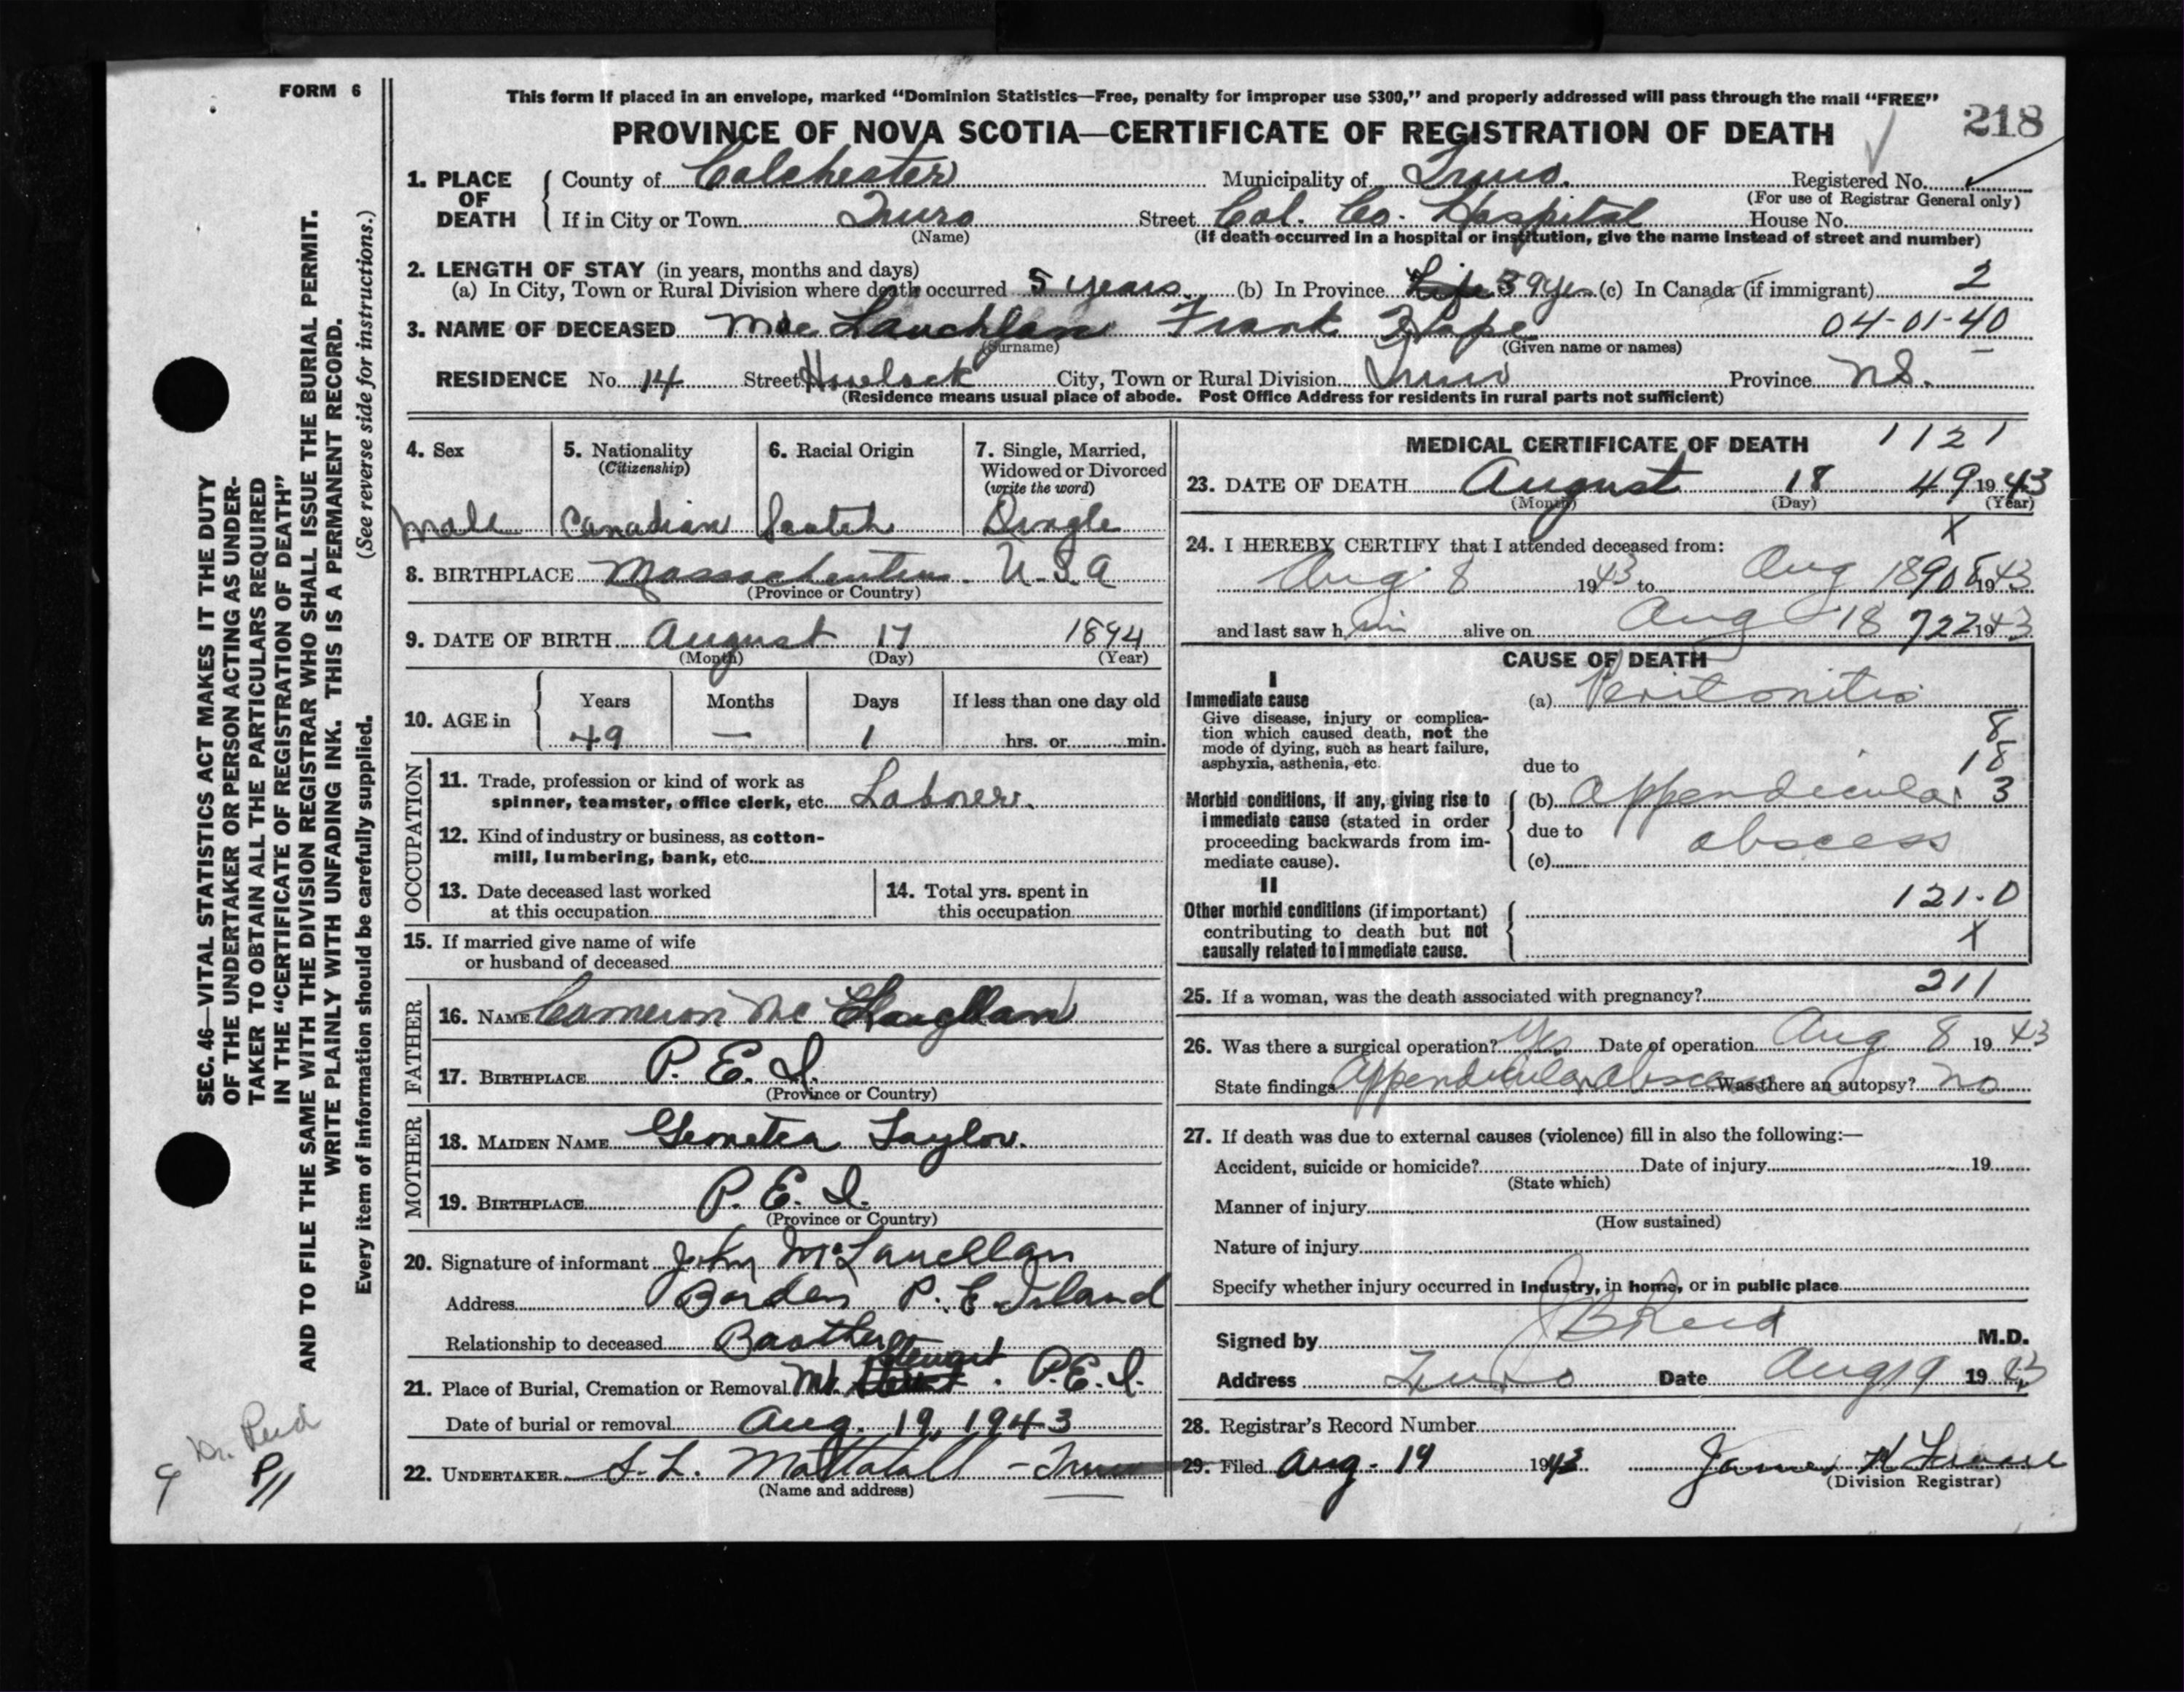 FORM 6
This form if placed in an envelope, marked “Dominion Statistics—Free, penalty for improper use $300,” and properly addressed will pass through the mail “FREE”
218
PROVINCE OF NOVA SCOTIA—CERTIFICATE OF REGISTRATION OF DEATH
1. PLACE OF DEATH
County of Colchester Municipality of Truro. Registered No.
(For use of Registrar General only)
If in City or Town Truro Street Col. Co. Hospital House No.
(Name) (If death occurred in a hospital or institution, give the name instead of street and number)
2. LENGTH OF STAY (in years, months and days)
(a) In City, Town or Rural Division where death occurred 5 years (b) In Province Life 39 yrs (c) In Canada (if immigrant) 2
3. NAME OF DECEASED Mac Lauchlan Frank 04-01-40
(Surname) (Given name or names)
RESIDENCE No. 14 Street City, Town or Rural Division Truro Province N.S.
(Residence means usual place of abode. Post Office Address for residents in rural parts not sufficient)
4. Sex
Male
5. Nationality
(Citizenship)
Canadian
6. Racial Origin
Scotch
7. Single, Married,
Widowed or Divorced
(write the word)
Single
8. BIRTHPLACE Massachusetts. U.S.A
(Province or Country)
9. DATE OF BIRTH August 17 1894
(Month) (Day) (Year)
10. AGE in
Years Months Days If less than one day old
49 — 1 hrs. or min.
OCCUPATION
11. Trade, profession or kind of work as
spinner, teamster, office clerk, etc. Laborer.
12. Kind of industry or business, as cotton-
mill, lumbering, bank, etc.
13. Date deceased last worked
at this occupation
14. Total yrs. spent in
this occupation
15. If married give name of wife
or husband of deceased
FATHER
16. NAME Cameron Mc
17. BIRTHPLACE P. E. I.
(Province or Country)
MOTHER
18. MAIDEN NAME Taylor.
19. BIRTHPLACE P. E. I.
(Province or Country)
20. Signature of informant John McLauchlan
Address Borden P. E. Island
Relationship to deceased Brother
Stewart
21. Place of Burial, Cremation or Removal Mt. . P.E.I.
Date of burial or removal Aug. 19, 1943
22. UNDERTAKER Mattatall - Truro
(Name and address)
MEDICAL CERTIFICATE OF DEATH 1121
23. DATE OF DEATH August 18 49 1943
(Month) (Day) (Year)
X
24. I HEREBY CERTIFY that I attended deceased from:
Aug 8 1943 to Aug 18 908 1943
and last saw him alive on Aug 18 722 1943
CAUSE OF DEATH
I
Immediate cause
Give disease, injury or complica-
tion which caused death, not the
mode of dying, such as heart failure,
asphyxia, asthenia, etc.
(a) Peritonitis
8
18
due to
Morbid conditions, if any, giving rise to
immediate cause (stated in order
proceeding backwards from im-
mediate cause).
(b) Appendicular 3
due to abscess
(c)
II
Other morbid conditions (if important)
contributing to death but not
causally related to immediate cause.
121.0
X
211
25. If a woman, was the death associated with pregnancy?
26. Was there a surgical operation? Yes Date of operation Aug 8 1943
State findings Appendicular abscess Was there an autopsy? no
27. If death was due to external causes (violence) fill in also the following:—
Accident, suicide or homicide? Date of injury 19
(State which)
Manner of injury
(How sustained)
Nature of injury
Specify whether injury occurred in Industry, in home, or in public place
Signed by J B Reid M.D.
Address Truro Date Aug 19 1943
28. Registrar's Record Number
29. Filed Aug. 19 1943 James
(Division Registrar)
SEC. 46—VITAL STATISTICS ACT MAKES IT THE DUTY
OF THE UNDERTAKER OR PERSON ACTING AS UNDER-
TAKER TO OBTAIN ALL THE PARTICULARS REQUIRED
IN THE “CERTIFICATE OF REGISTRATION OF DEATH”
AND TO FILE THE SAME WITH THE DIVISION REGISTRAR WHO SHALL ISSUE THE BURIAL PERMIT.
WRITE PLAINLY WITH UNFADING INK. THIS IS A PERMANENT RECORD.
Every item of information should be carefully supplied. (See reverse side for instructions.)
Dr. Reid